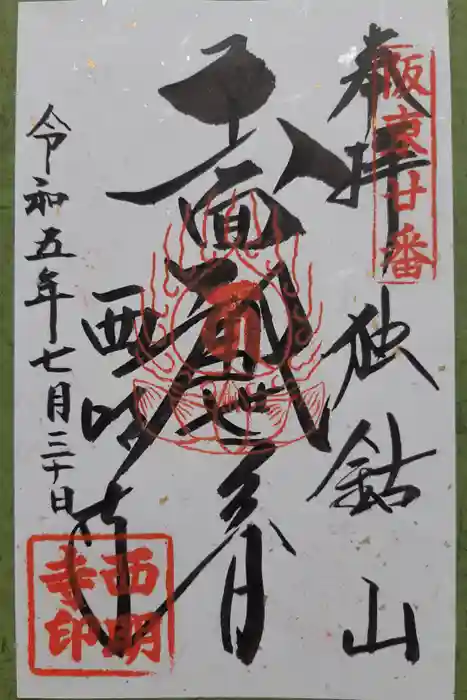 阪東廿番
奉拝
独鈷山
十一面観世音
西明寺
令和五年七月三十日
西明
寺印